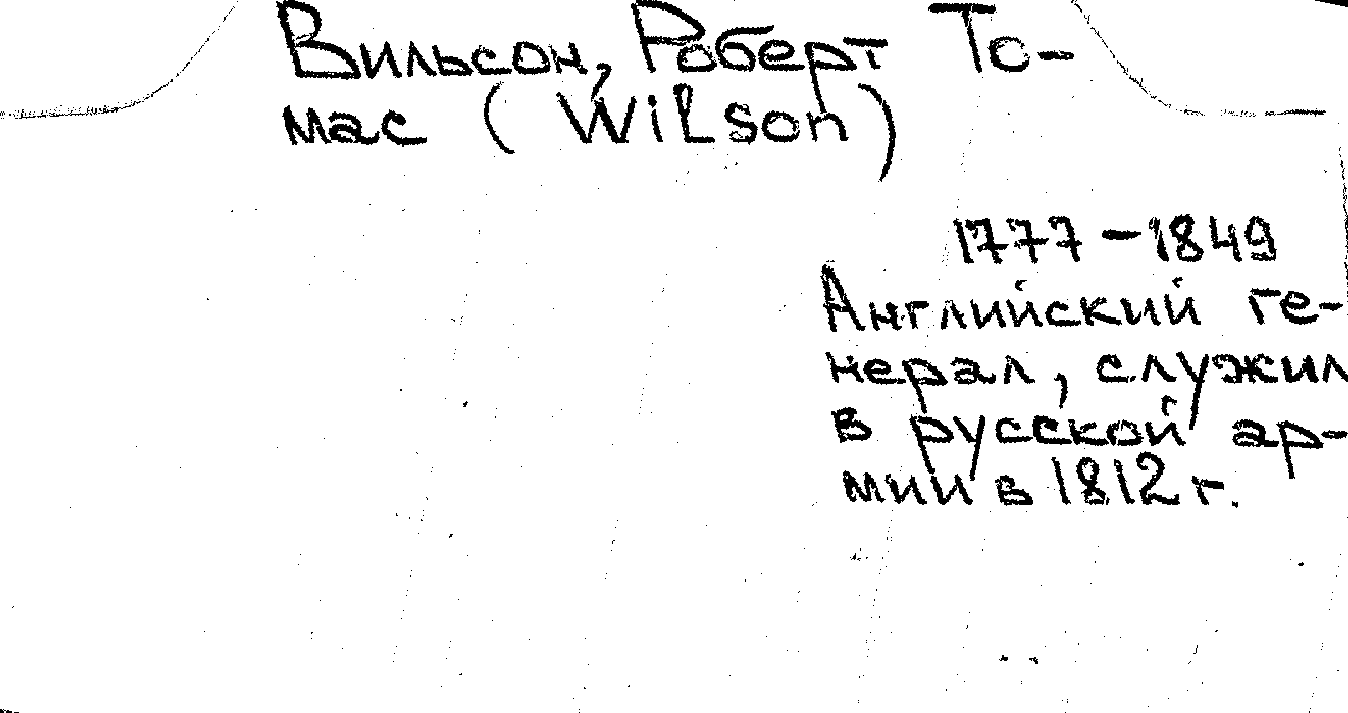 Вильсон, Роберт То-
мас (Wilson)
1777-1849
Английский ге-
нерал, служил
в русской ар-
мии в 1812 г.